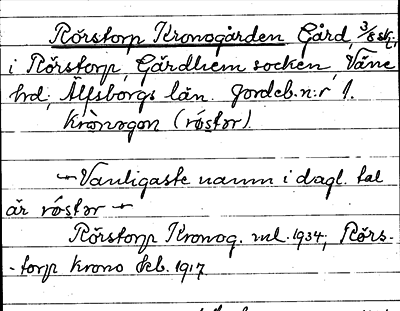 Rörstorp Kronogården Gård, 3/8 sk.;
i Rörstorp, Gärdhem socken, Väne
hd, Älfsborgs län. Jordeb.n:r 1.
krònogon (rö́stor).
~ Vanligaste namn i dagl. tal
är rö́stor ~
Rörstorp Kronog. ml. 1934; Rörs-
-torp Krono kb. 1917